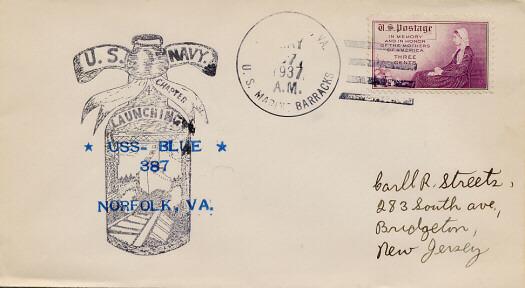 U.S. NAVY.
CHAPTER
LAUNCHING
★ USS- BLUE ★
387
NORFOLK, VA.
VA.
1937
A.M.
U.S. MARINE BARRACKS
U.S. Postage
IN MEMORY
AND IN HONOR
OF THE MOTHERS
OF AMERICA
THREE
CENTS
Carll R. Streets,
283 South ave,
Bridgeton,
New Jersey